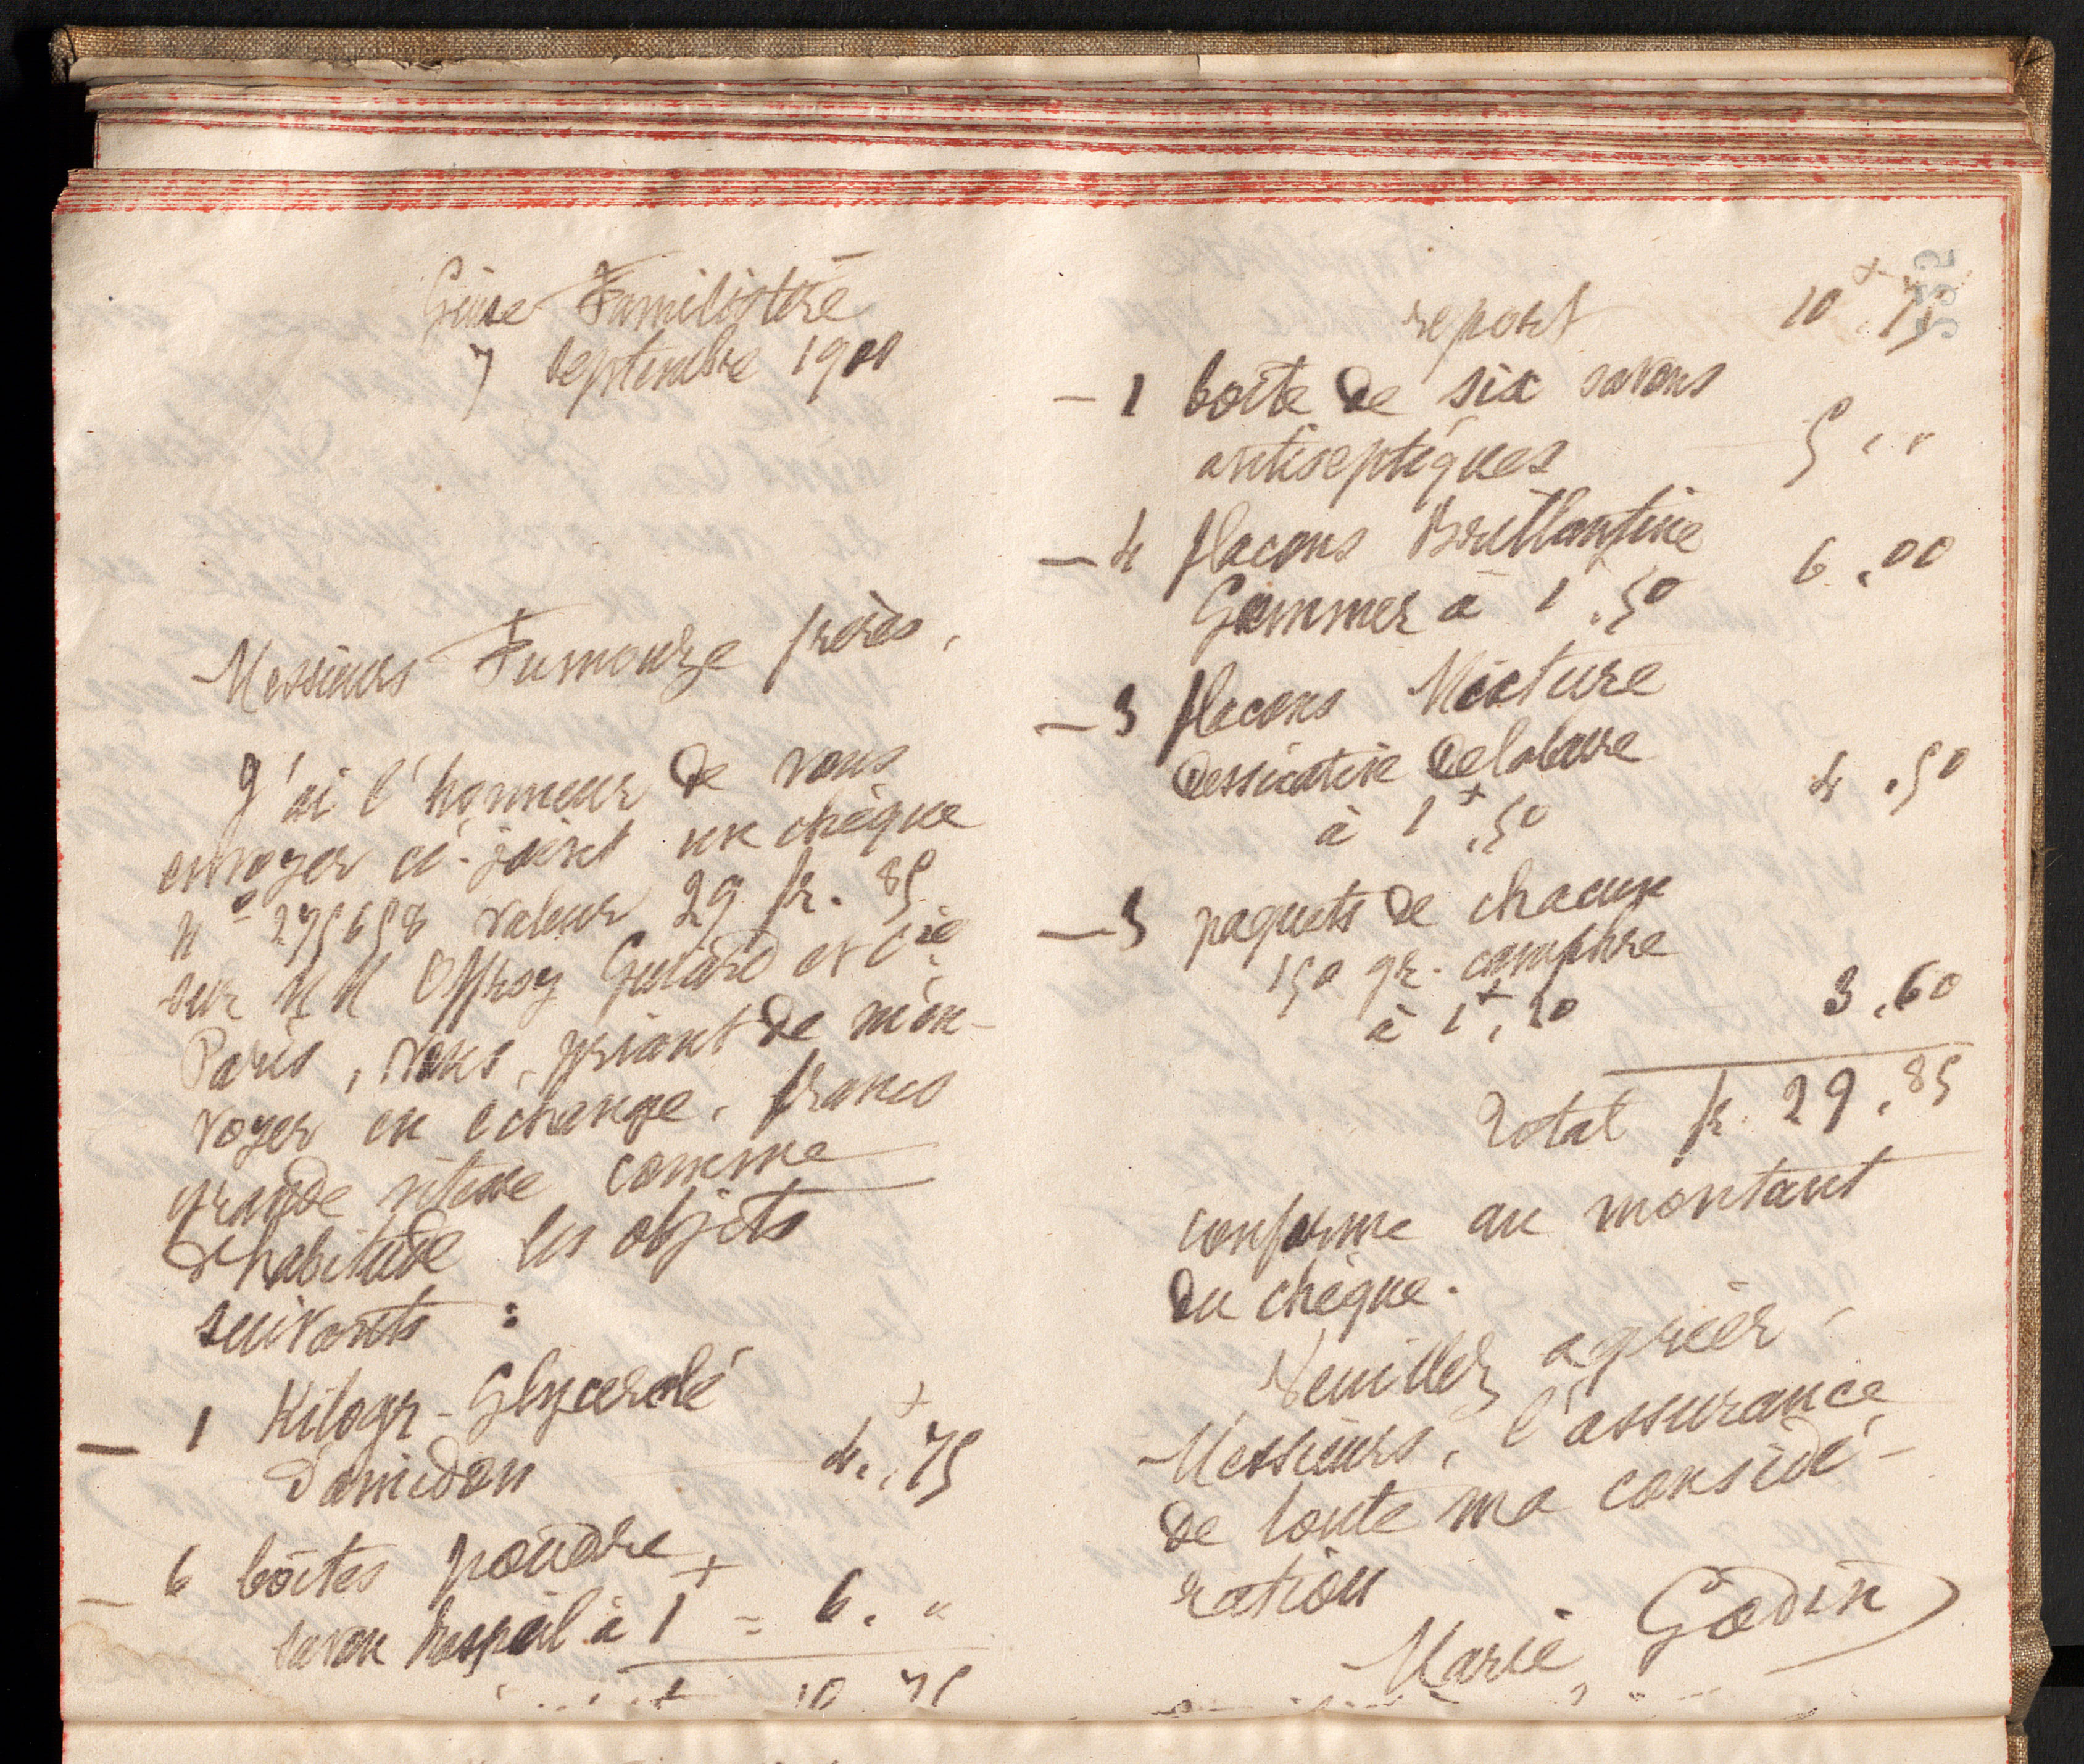 Guise Familistère
7 septembre 1900
Messieurs Fumouze frères,
J'ai l'honneur de vous
envoyer ci-joint un chèque
N° 275658 valeur 29 fr. 85
sur MM Offroy Guiard et Cie
Paris, vous priant de m'en-
voyer en échange, franco
grande vitesse comme
d'habitude les objets
suivants :
— 1 Kilogr. Glycérolé
d'amidon 4f.,75
— 6 boîtes poudre
savon Raspail à 1f = 6. "
10 75
552
report 10f,75
— 1 boîte de six savons
antiseptiques 5 , "
— 4 flacons Brillantine
Gommer à 1.50 6.00
— 3 flacons Mixture
dessicative Delabarre
à 1f.50 4.50
— 3 paquets de chacun
150 gr. camphre
à 1f,20 3.60
Total fr. 29.85
conforme au montant
du chèque.
Veuillez agréer,
Messieurs, l'assurance
de toute ma considé-
ration
Marie Godin